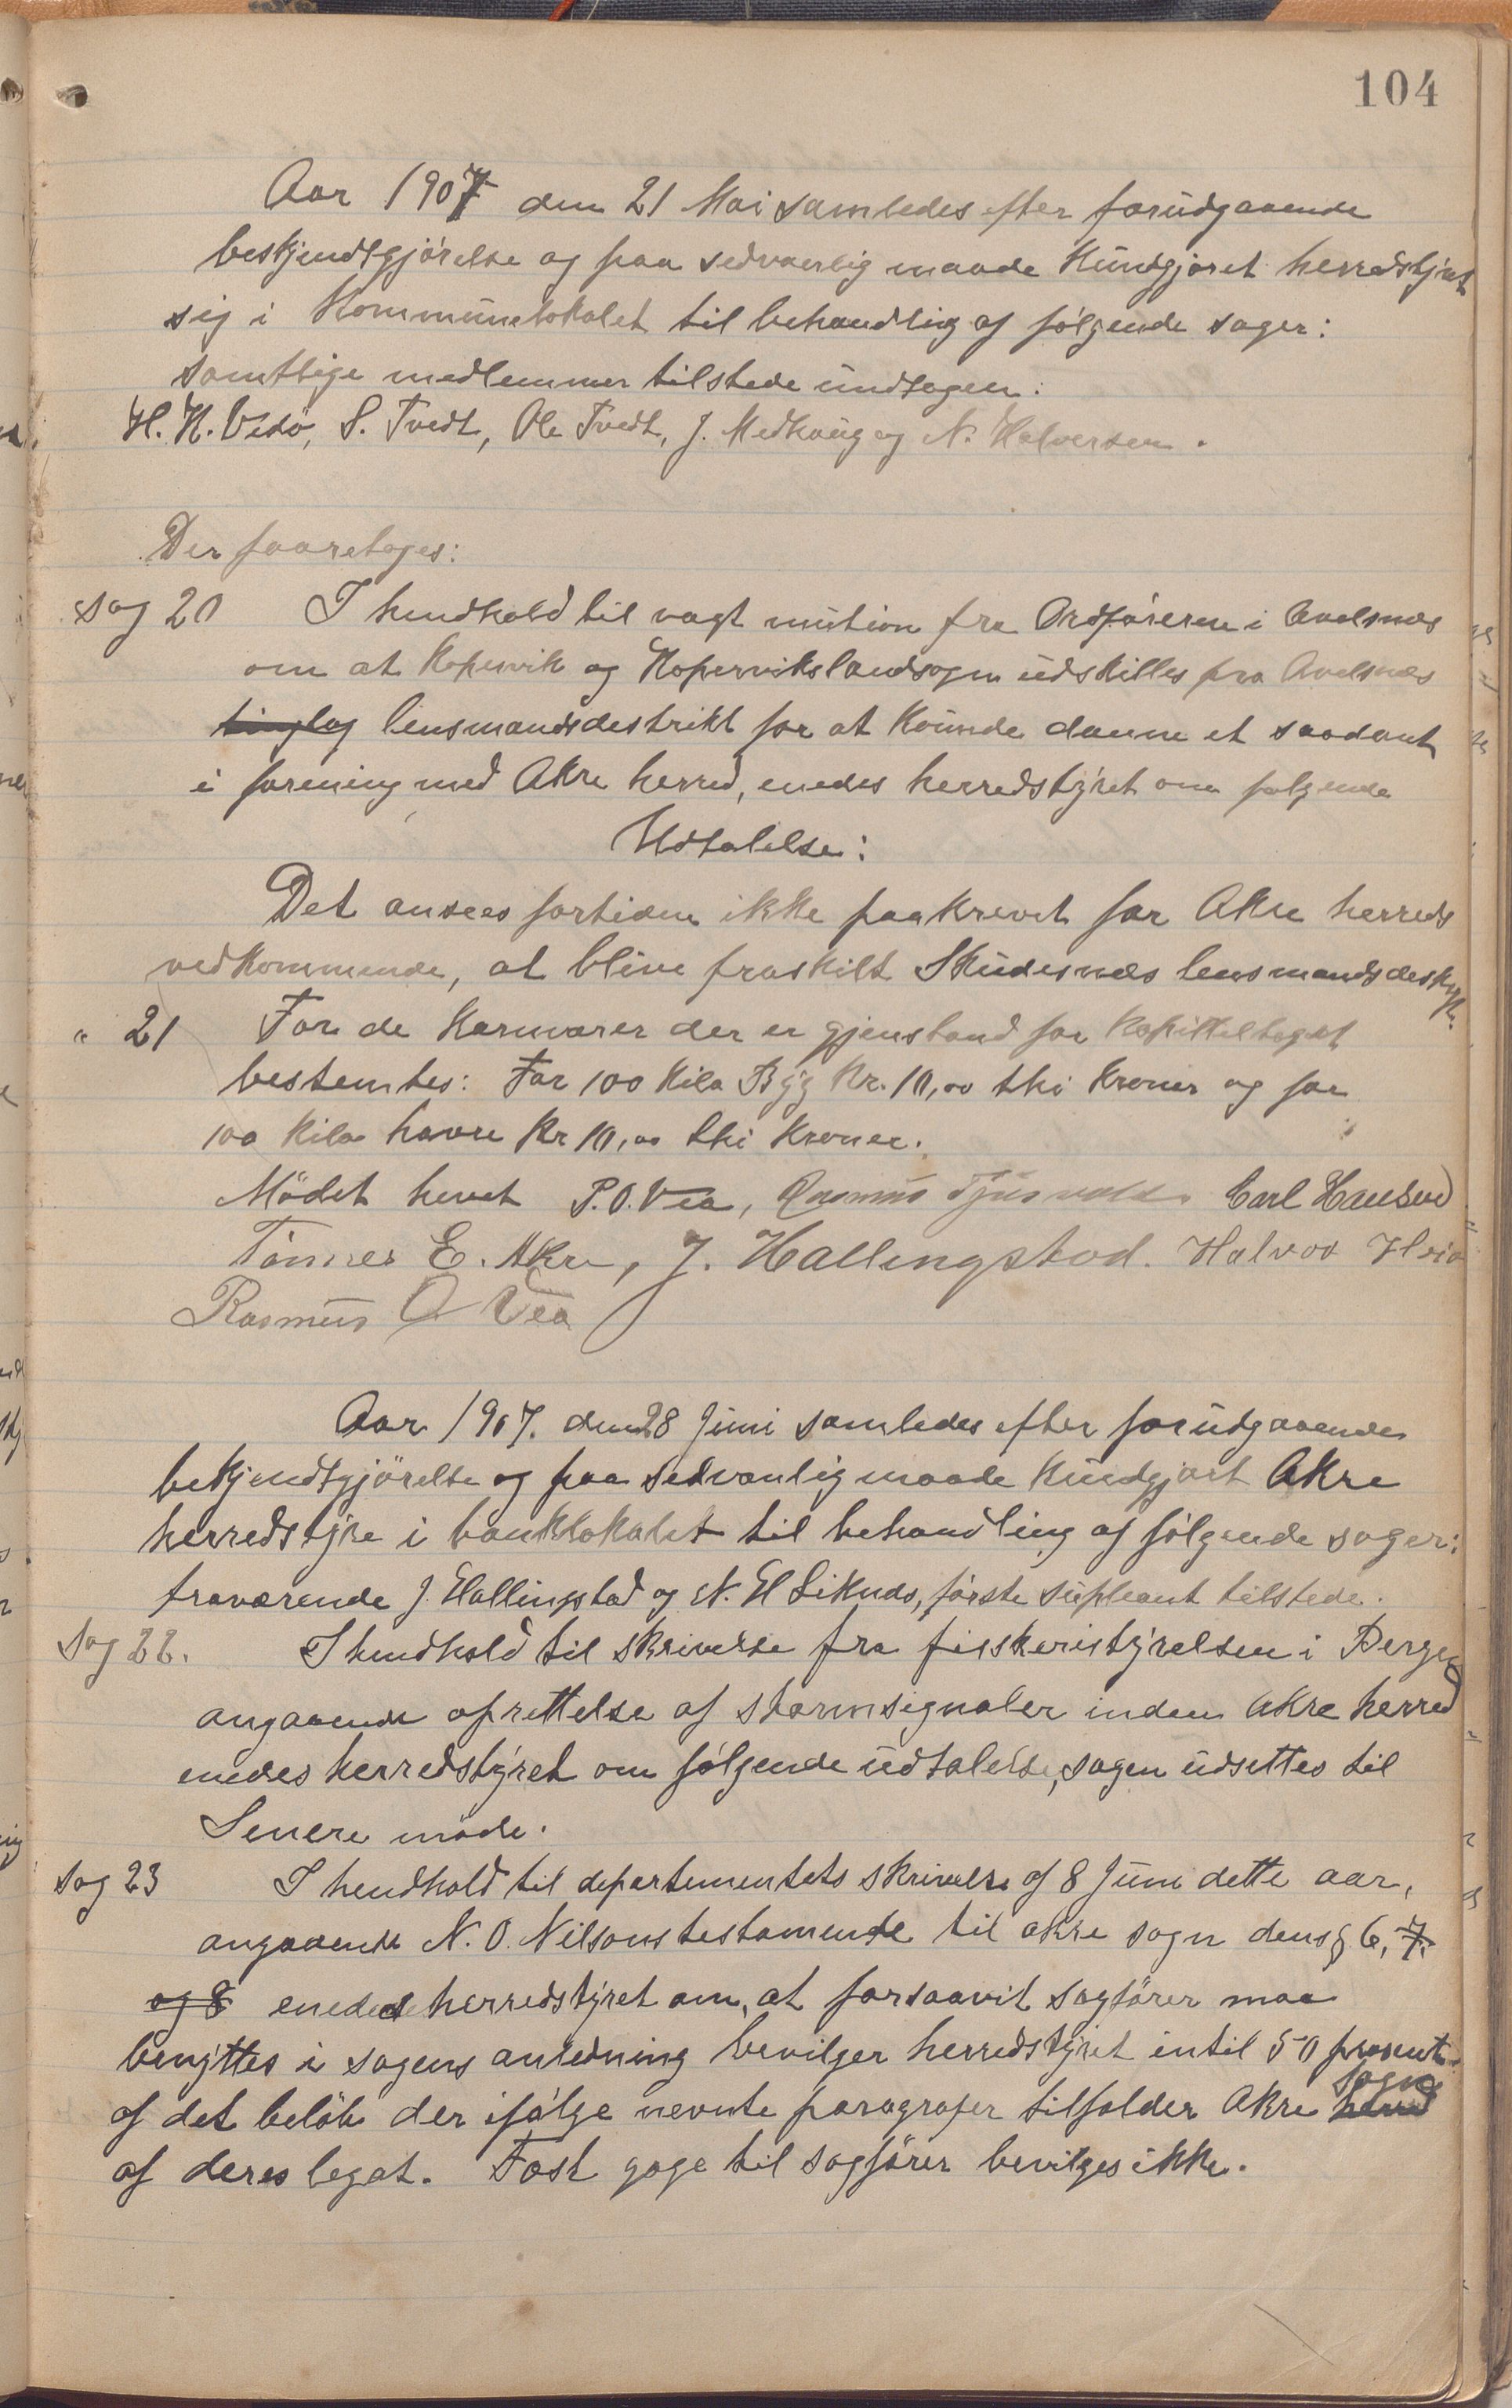 104
Aar 1907 den 21 Mai samledes efter forudgaaende
beskjendtgjörelse og paa sedvaerlig maade kundgjoret herredstyret
sig i Kommunelokalet til behandling af følgende sager:
samtlige medlemmer tilstede undtagen:
H. H. Vedö, S. Tvedt, Ole Tvedt, J. Medhaug og N. Halversen.
Der foaretoges:
Sag 20 I hendhold til vagt mution fra Ordføreren i Avelsnes
om at Kopervik og Kopervikslandsogn udskilles fra Avelsnes
tinglag lensmandsdestrikt for at kunde danne et saadant
i forening med Akre herred, enedes herredstyret om følgende
Udtalelse:
Det ansees fortiden ikke paakrevet for Akre herreds
vedkommende, at blive fraskilt Skudesnes lensmandsdestrikt.
" 21 For de Kornvarer der er gjenstand for Kapitteltagst
bestemtes: For 100 Kilo Byg Kr. 10,00 thi Kroner og for
100 Kilo havre Kr 10,00 thi Kroner.
Mödet hevet P.O. Vea, Rasmus Tjøsvold Carl Hansen
Tönnes E. Akre, J. Hallingstad. Halvor
Rasmus O Vea
Aar 1907. den 28 Juni samledes efter forudgaaende
bekjendtgjörelse og paa sedvanlig maade kundgjort Akre
herredstyre i banklokalet til behandling af følgende sager:
fraværende J. Hallingstad og N. H Liknes, første supleant tilstede.
Sag 22. I hendhold til skrivelse fra fiskeristyrelsen i Bergen
angaaende oprettelse af stormsignaler inden Akre herred
enedes herredstyret om følgende udtalelse, sagen udsettes til
Senere möde.
Sag 23 I hendhold til departementets skrivelse af 8 Juni dette aar,
angaaende N. O. Nilsons testamende til akre sogn dens § 6, 7.
og 8 enedede herredstyret om, at forsaavit sagfører maa
benyttes i sagens anledning bevilger herredstyret intil 50 prosent
af det belöb der ifølge nevnte paragrafer tilfalder Akre herred sogn
af deres legat. Fast gage til sagfører bevilges ikke.